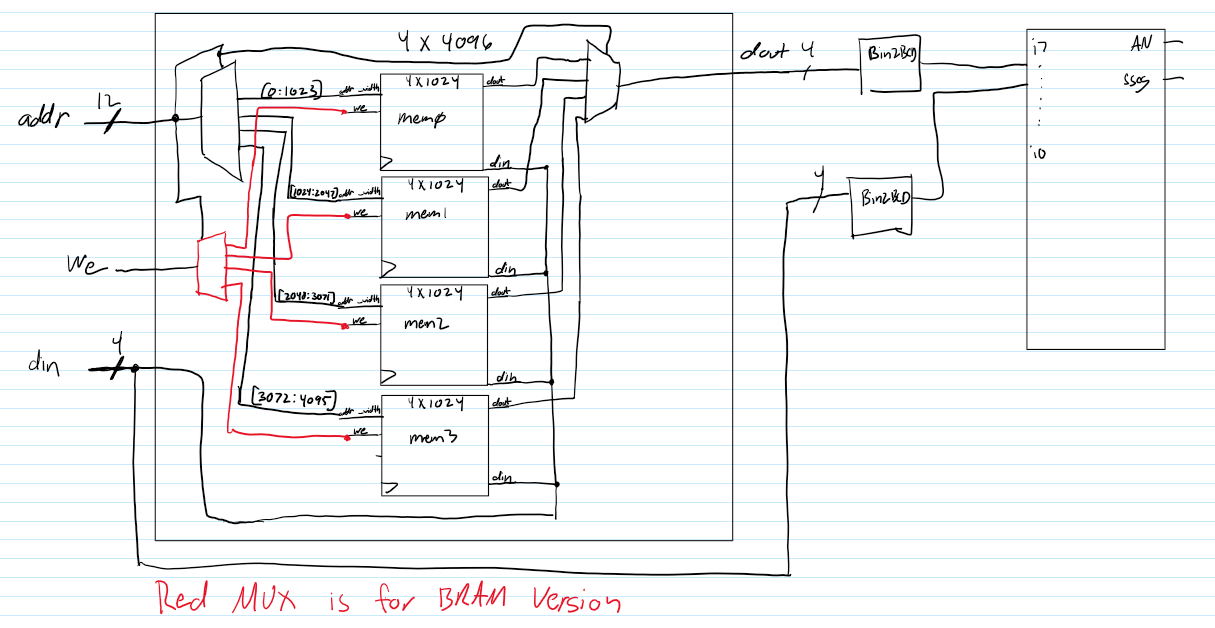 4 X 4096
addr 12
we
din 4
[0:1023] addr_width
we
4X1024
mem0
dout
din
[1024:2047] addr_width
we
4X1024
mem1
dout
din
[2048:3071] addr_width
we
4X1024
mem2
dout
din
[3072:4095] addr_width
we
4X1024
mem3
dout
din
dout 4
Bin2BCD
4
Bin2BCD
i7
i0
AN
SSEG
Red MUX is for BRAM Version